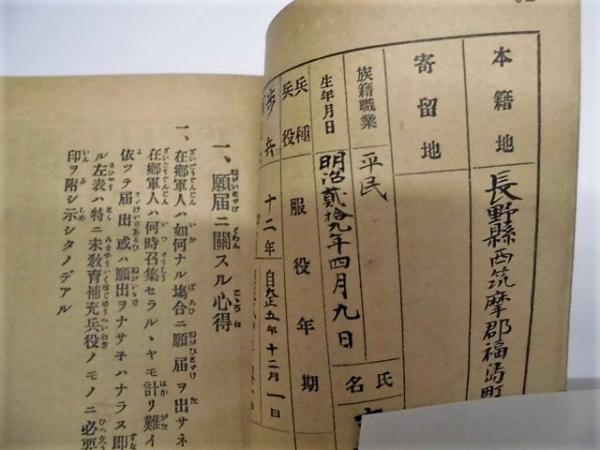 本籍地
長野縣西筑摩郡福島町
寄留地
族籍職業
平民
氏名
生年月日
明治貳拾九年四月九日
兵種
兵役
服役年期
歩兵
十二年
自大正五年十二月一日
一、願届ニ關スル心得
一、在郷軍人ハ如何ナル塲合ニ願届ヲ出サネ
在郷軍人ハ何時召集セラルヽヤモ計リ難イ
依ツテ届出或ハ願出ヲナサナケ��ハナラス即
ル左表ハ特ニ未敎育補充兵役ノモノニ必要
印ヲ附シ示シタノデアル